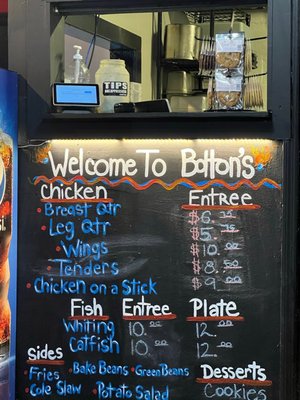 TIPS
Welcome To Botton's
Chicken Entree
• Breast Qtr $6.25
• Leg Qtr $5.75
• Wings $10.00
• Tenders $8.50
• Chicken on a Stick $9.00
Fish Entree Plate
Whiting 10.00 12.00
Catfish 10.00 12.00
Sides
• Fries • Bake Beans • Green Beans
• Cole Slaw • Potato Salad
Desserts
Cookies